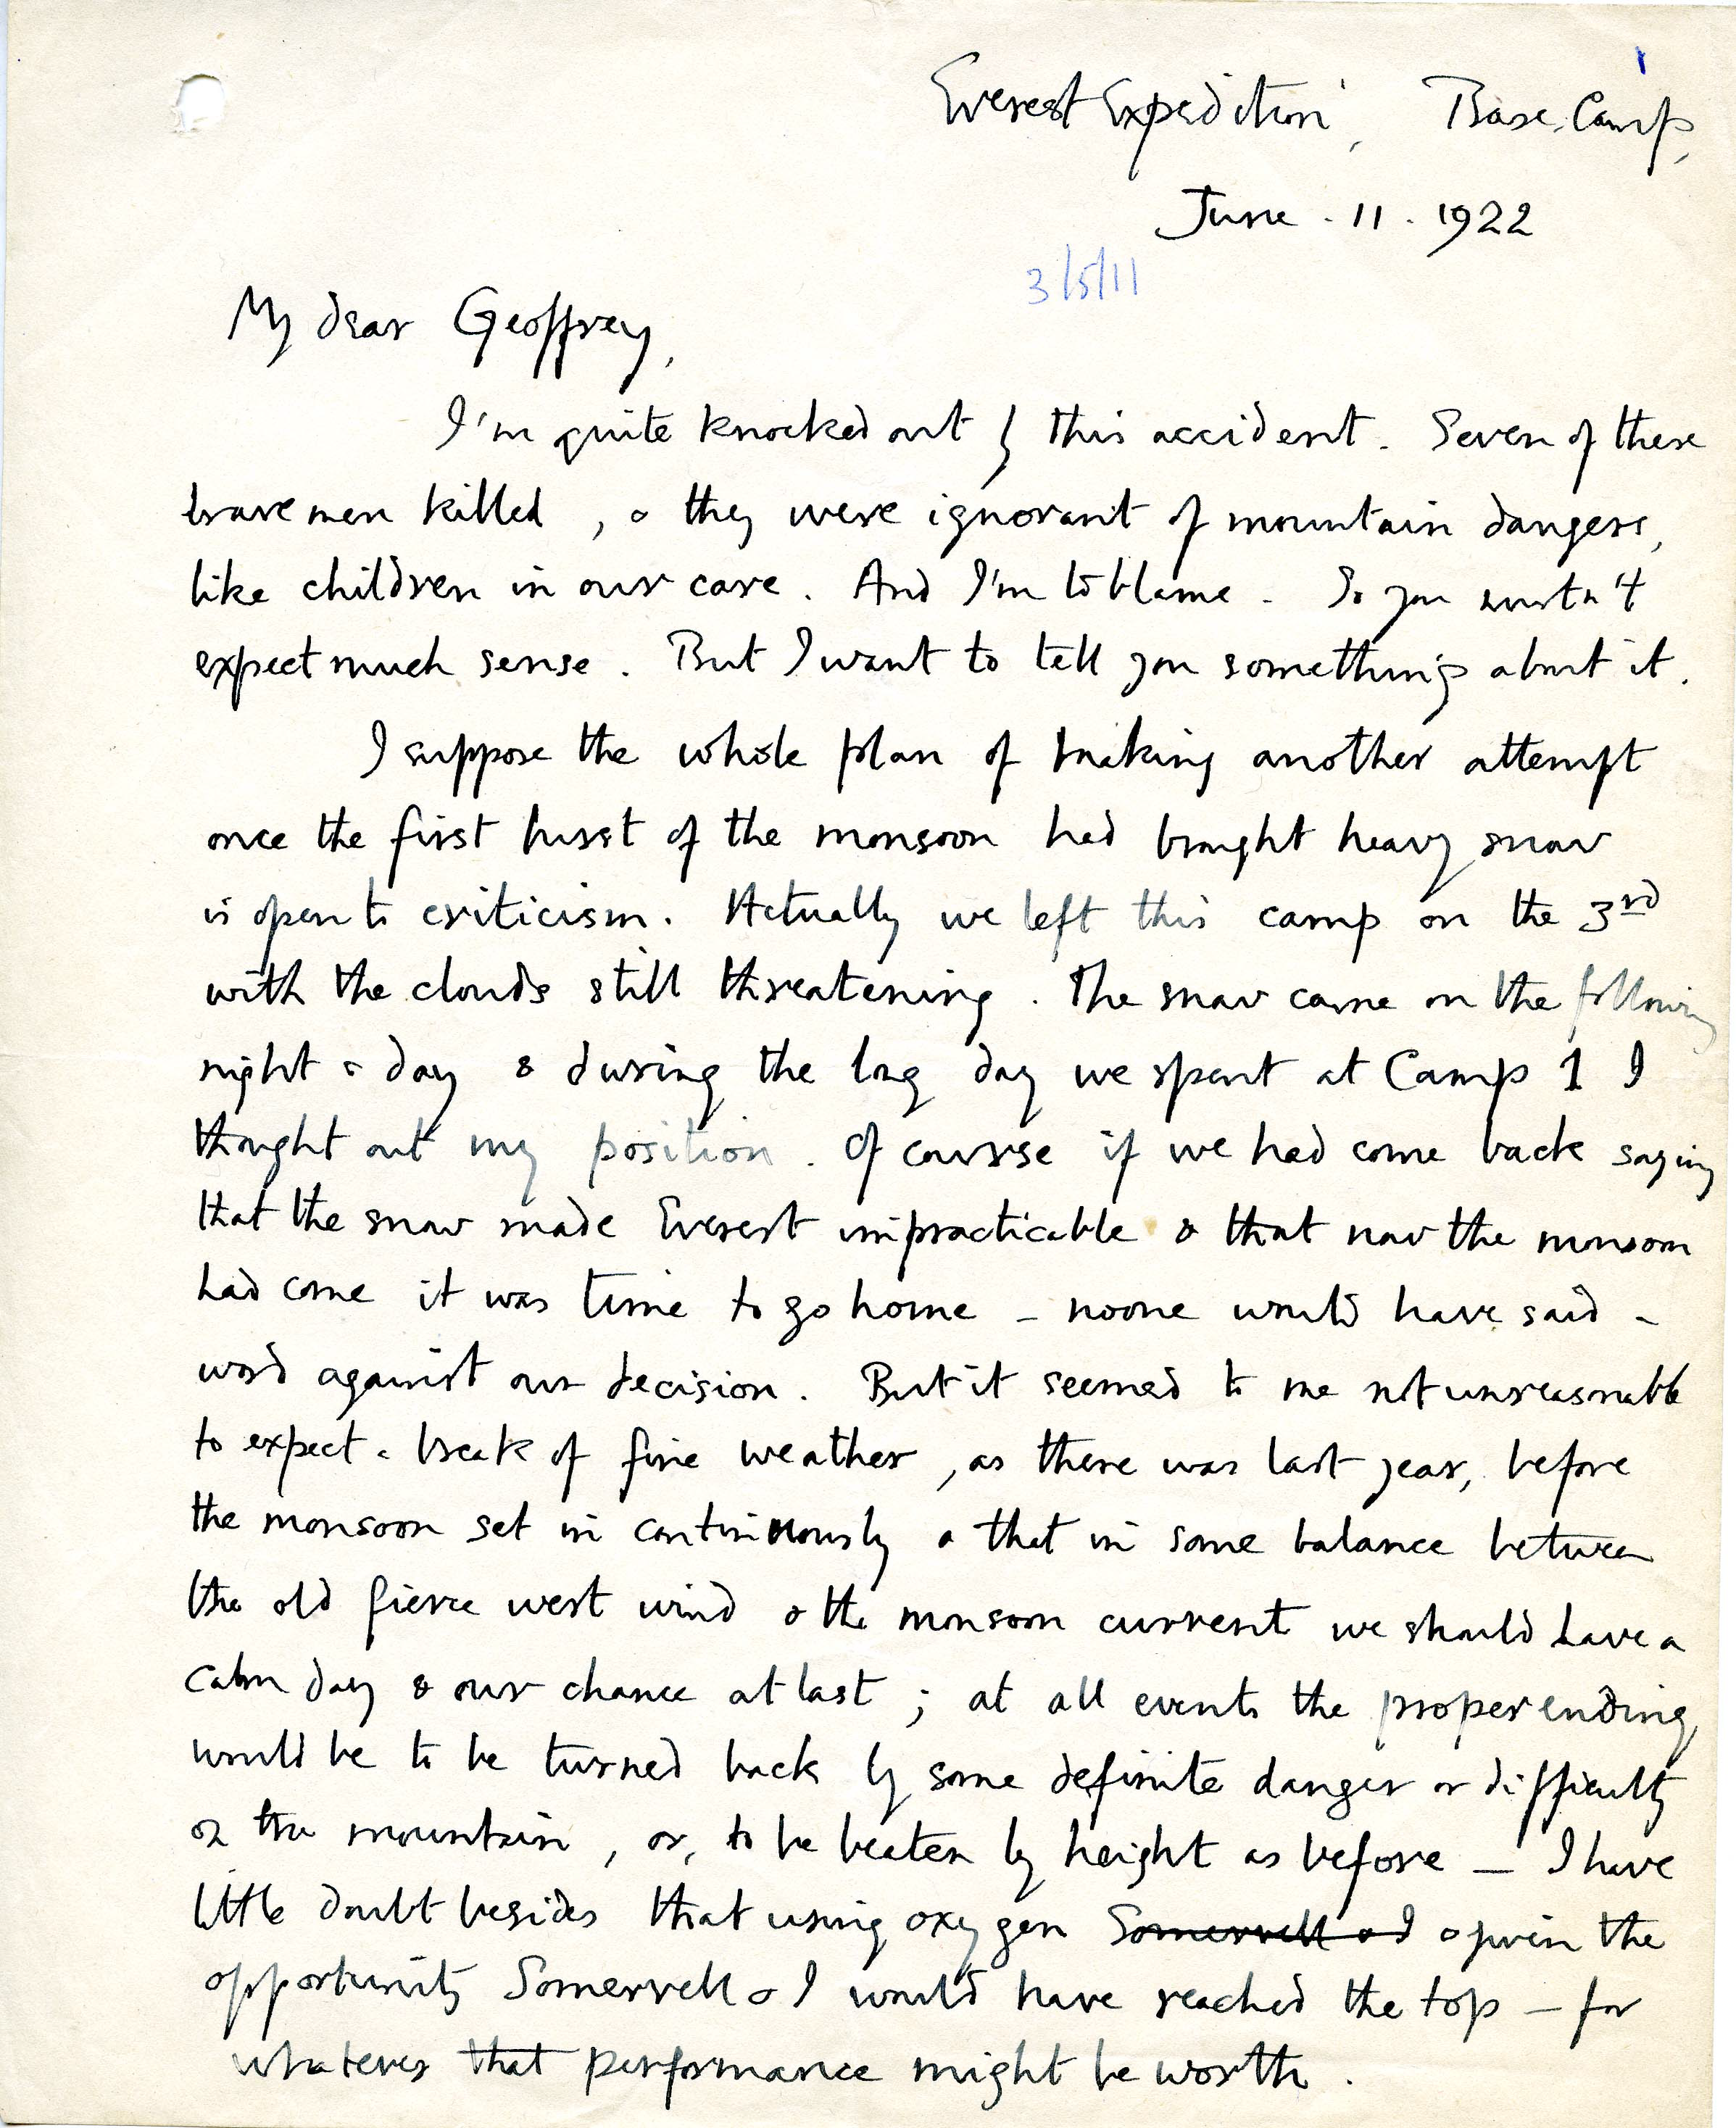 Everest Expedition, Base Camp,
June . 11 . 1922
3/5/11
My dear Geoffrey,
I'm quite knocked out by this accident. Seven of these
brave men killed, & they were ignorant of mountain dangers,
like children in our care. And I'm to blame. So you mustn't
expect much sense. But I want to tell you something about it.
I suppose the whole plan of making another attempt
once the first burst of the monsoon had brought heavy snow
is open to criticism. Actually we left this camp on the 3rd
with the clouds still threatening. The snow came on the following
night & day & during the long day we spent at Camp 1 I
thought out my position. Of course if we had come back saying
that the snow made Everest impracticable & that now the monsoon
had come it was time to go home – noone would have said a
word against our decision. But it seemed to me not unreasonable
to expect a break of fine weather, as there was last year, before
the monsoon set in continuously & that in some balance between
the old fierce west wind & the monsoon current we should have a
calm day & our chance at last; at all events the proper ending
would be to be turned back by some definite danger or difficulty
on the mountain, or, to be beaten by height as before – I have
little doubt besides that using oxygen Somervell and I & given the
opportunity Somervell & I would have reached the top – for
whatever that performance might be worth.